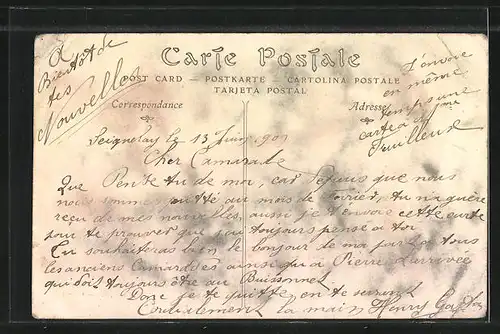 A
Bientôt de
tes
Nouvelles
Carte Postale
POST CARD — POSTKARTE — CARTOLINA POSTALE
TARJETA POSTAL
Correspondance
Adresse
J'envoie
en même
temps une
carte à
Seignelay le 13 Juin 190
Cher Camarade
Que Pense tu de moi, car depuis que nous
nous sommes quitté au mois de Février, tu n'a guère
reçu de mes nouvelles, aussi je t'envoie cette carte
pour te prouver que je toujours pensé à toi
Tu souhaiteras bien le bonjour de ma part à tous
les anciens Camarades ainsi qu'à Pierre
qui doit toujours être au Buissonnet
Donc je te quitte en te serrant
Cordialement la main Henry